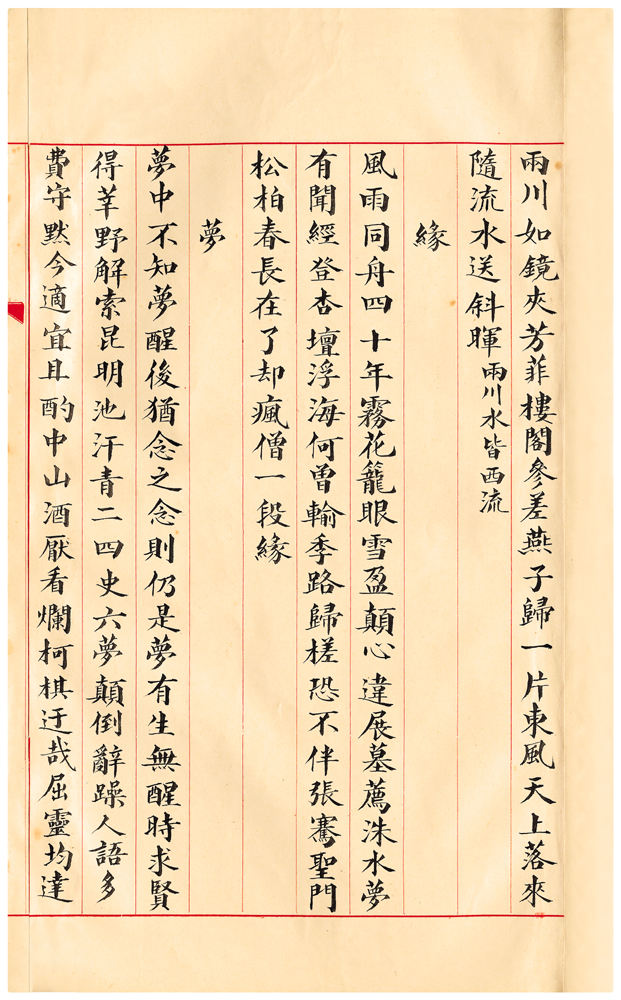 兩川如鏡夾芳菲樓閣參差燕子歸一片東風天上落來
隨流水送斜暉兩川水皆西流
緣
風雨同舟四十年霧花籠眼雪盈顛心違展墓薦洙水夢
有聞經登杏壇浮海何曾輸季路歸槎恐不伴張騫聖門
松柏春長在了却瘋僧一段緣
夢
夢中不知夢醒後猶念之念則仍是夢有生無醒時求賢
得莘野解索昆明池汗青二四史六夢顛倒辭躁人語多
費守黙今適宜且酌中山酒厭看爛柯棋迂哉屈靈均達